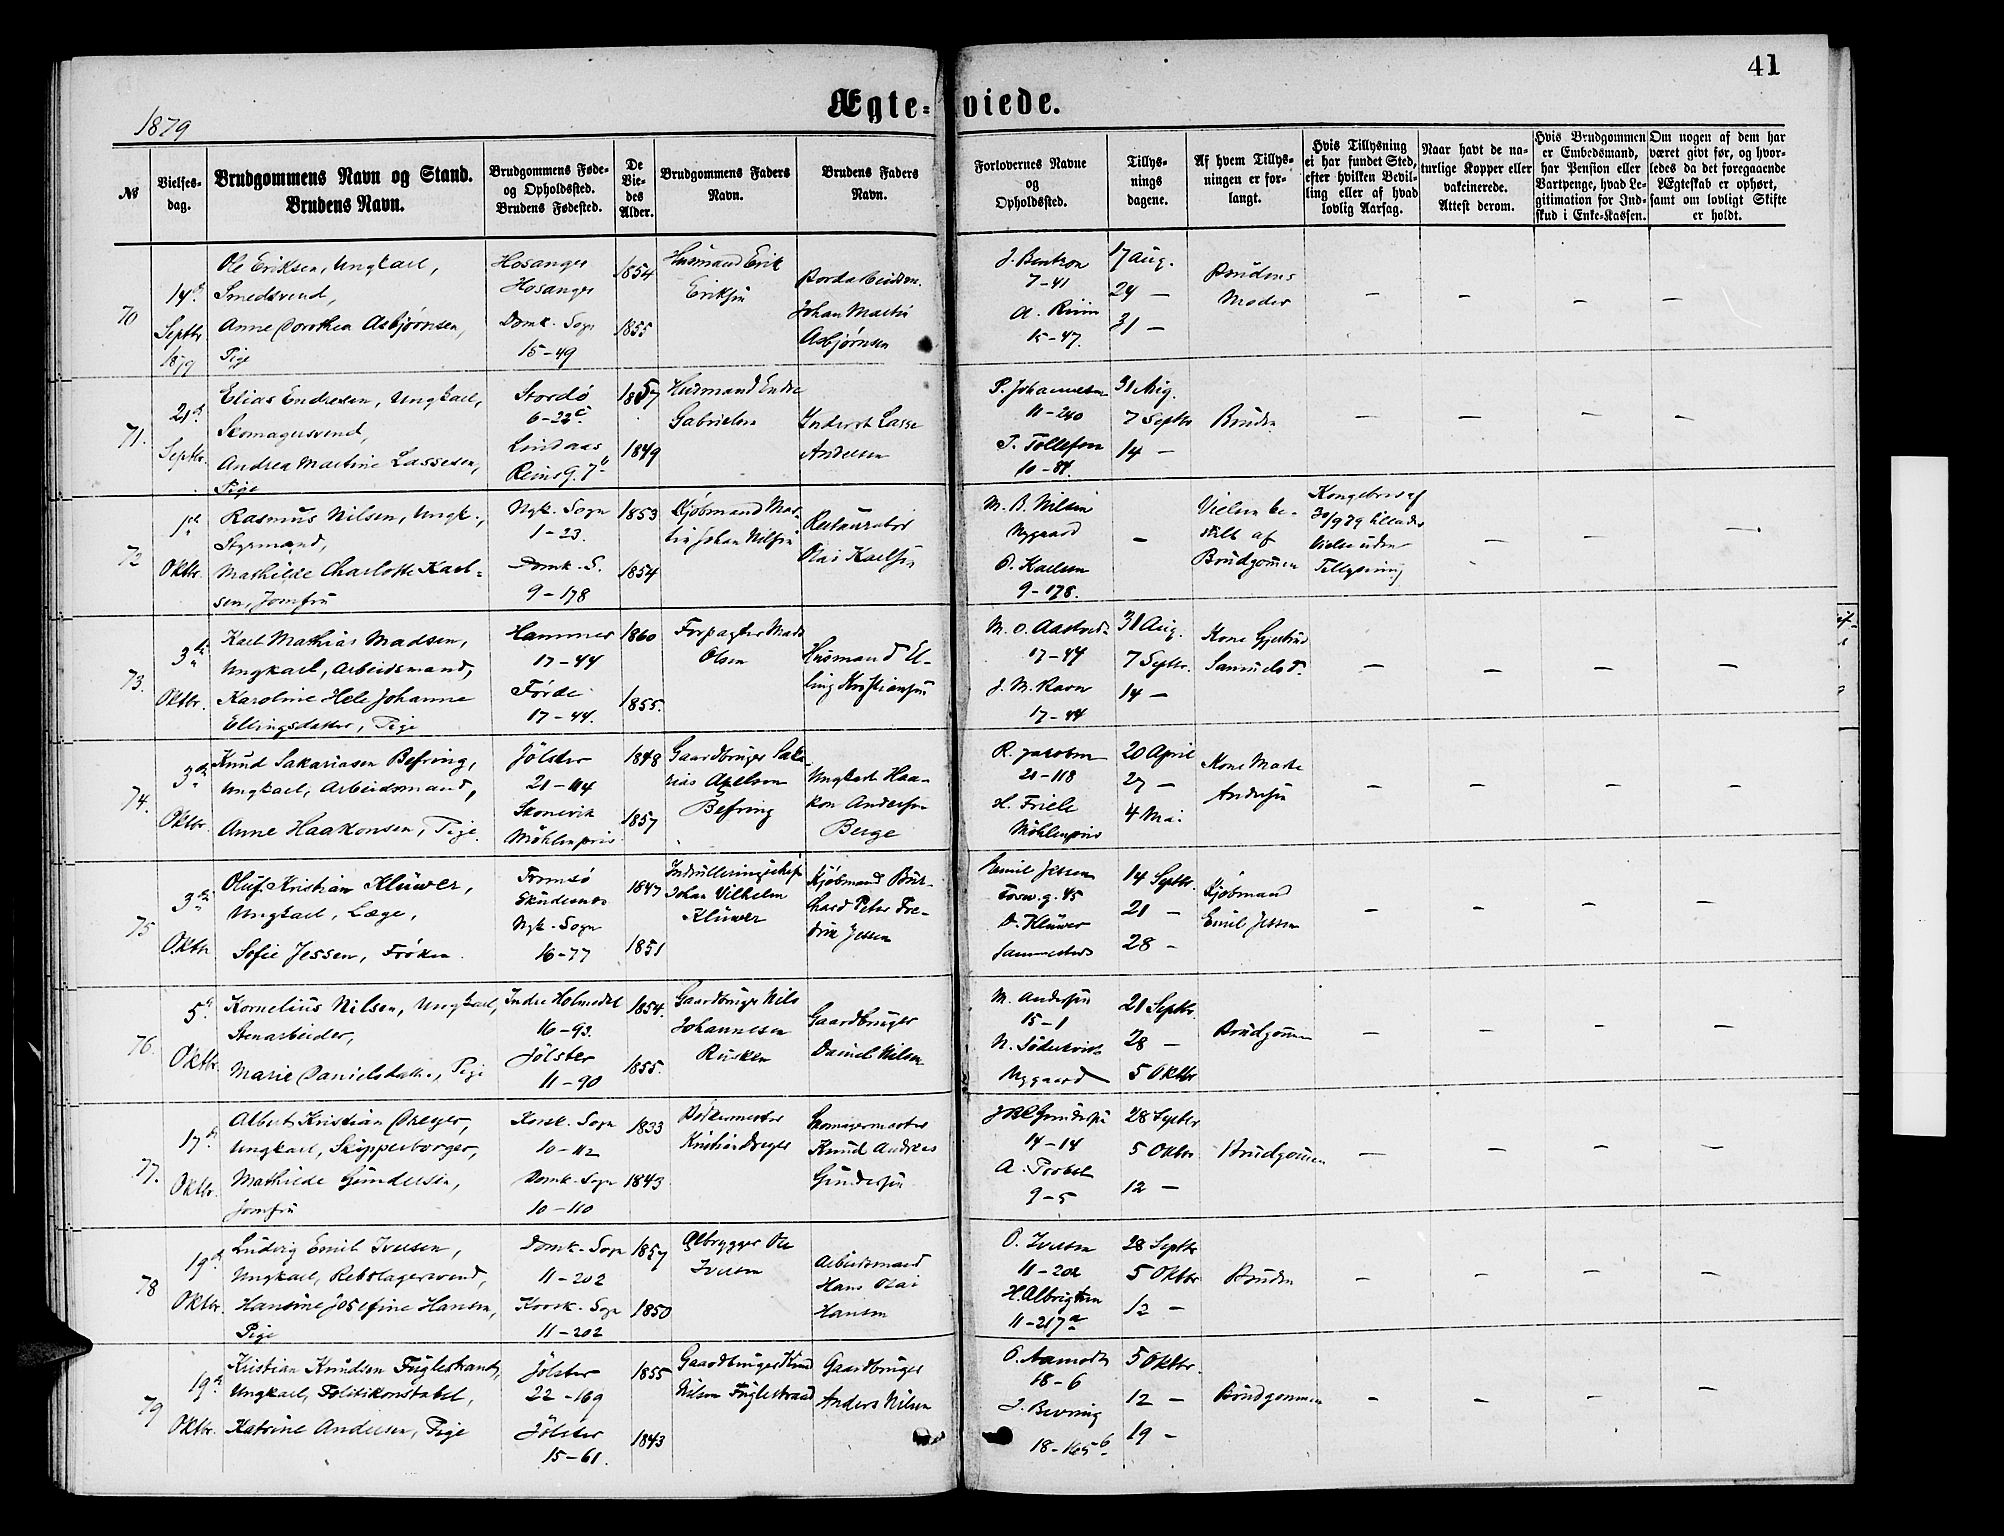 41
1879
Ægte-viede.
№
Vielses-dag.
Brudgommens Navn og Stand.
Brudens Navn.
Brudgommens Føde-
og Opholdssted.
Brudens Fødested.
De
Vie-
des
Alder.
Brudgommens Faders
Navn.
Brudens Faders
Navn.
Forlovernes Navne
og
Opholdssted.
Tillys-
nings
dagene.
Af hvem Tillys-
ningen er for-
langt.
Hvis Tillysning
ei har fundet Sted,
efter hvilken Bevil-
ling eller af hvad
lovlig Aarsag.
Naar havt de na-
turlige Kopper eller
vakcinerede.
Attest derom.
Hvis Brudgommen
er Embedsmand,
har Pension eller
Vartpenge, hvad Le-
gitimation for Ind-
skud i Enke-Kassen.
Om nogen af dem har
været givt før, og hvor-
ledes da det foregaaende
Ægteskab er ophørt,
samt om lovligt Skifte
er holdt.
70
14de
Septbr
1879
Ole Eriksen, Ungkarl,
Smedsvend,
Anne Dorothea Asbjørnsen,
Pige
Hosanger
Hosanger
Domk. Sogn
15-49
1854
1855
Husmand Erik
Eriksen
Johan Martin
Asbjørnsen
J. Bentzon
7-41
15-47.
17 Aug.
24 —
31 —
Brudens
Moder
— — — —
71.
21de
Septbr.
Elias Endresen, Ungkarl,
Skomagersvend,
Andrea Martine Lassesen,
Pige
Stordö
6-22c
Lindaas
Reins G. 7b
1857
1849
Husmand Endre
Gabrielsen
Inderst Lasse
Andersen
P. Johannesen
11-240
T. Tollefsen
10-84.
31 Aug.
7 Septbr
14 —
Bruden
— — — —
72
1ste
Oktbr.
Rasmus Nilsen, Ungk.,
Styrmand,
Mathilde Charlotte Karl-
sen, Jomfru
Nyk. Sogn
1-23.
Domk. S.
9-178
1853
1854
Kjøbmand Mar-
tin Johan Nilsen
Restauratør
Olai Karlsen
M. B. Nilsen
Nygaard
O. Karlsen
9-178.
—
Vielsen be-
stilt af
Brudgommen
Kongebrev af
30/9 79 tillader
Vielse uden
Tillysning
— — —
73.
3die
Oktbr.
Karl Mathias Madsen,
Ungkarl, Arbeidsmand,
Karoline Hele Johanne
Ellingsdatter, Pige
Hammer
17-44
Førde
17-44.
1860
1855.
Forpagter Mads
Olsen
Husmand El-
ling Kristiansen
17-44
J. M. Ravn
17-44
31 Aug.
7 Septbr.
14 —
Kone Gjertrud
Samuelsd.
— — — —
74.
3die
Oktbr.
Knud Sakariasen Befring,
Ungkarl, Arbeidsmand,
Anne Haakonsen, Pige.
Jölster
21-114
Skonevik
Möhlenpris
1848
1857
Gaardbruger Saka-
rias Axelsen
Befring
Ungkarl Haa-
kon Andersen
Berge
R. Jacobsen
21-118
H. Friele
Möhlenpris
20 April
27 —
4 Mai
Kone Marte
Andersen
— — — —
75
3die
Oktbr
Oluf Kristian Klüwer,
Ungkarl, Læge,
Sofie Jessen, Fröken.
Tromsö
Skudesnes
Nyk. Sogn
16-77
1847
1851
Indrulleringschef
Johan Vilhelm
Klüwer
Kjøbmand Bur-
chard Peter Fre-
drik Jessen
Emil Jessen
Torvg. 45
O. Klüwer
sammesteds
14 Septbr.
21 —
28 —
Kjøbmand
Emil Jessen
— — — —
76.
5te
Oktbr.
Kornelius Nilsen, Ungkarl,
Stenarbeider,
Marie Danielsdatter, Pige
Indre Holmedal
16-93.
Jölster
11-90
1854.
1855.
Gaardbruger Nils
Johannesen
Rusken
Gaardbruger
Daniel Nilsen
M. Andersen
15-1
Nygaard
21 Septbr.
28 —
5 Oktbr
Brudgommen
— — — —
77.
17de
Oktbr.
Albert Kristian Dreyer,
Ungkarl, Skipperborger,
Mathilde Gundersen,
Jomfru
Korsk. Sogn
10-112
Domk. Sogn
10-110
1833
1843
Bødkermester
Kristian Dreyer
Skomagermester
Knud Andreas
Gundersen
14-14
9-5
28 Septbr
5 Oktbr
12 —
Brudgommen
— — — —
78
19de
Oktbr.
Ludvig Emil Iversen,
Ungkarl, Rebslagersvend,
Hansine Josefine Hansen,
Pige
Domk. Sogn
11-202
Korsk. Sogn
11-202
1857
1850
Ølbrygger Ole
Iversen
Arbeidsmand
Hans Olai
Hansen
O. Iversen
11-202
H. Albrigtsen
11-217a
28 Septbr
5 Oktbr
12 —
Bruden
— — — —
79
19de
Oktbr.
Kristian Knudsen Fuglestrand,
Ungkarl, Politikonstabel,
Katrine Andersen, Pige
Jölster
22-169
Jölster
15-61.
1855
1843
Gaardbruger Knud
Nilsen Fuglestrand
Gaardbruger
Anders Nilsen
O. Aamodt
18-6
J. Bevring
18-165b
5 Oktbr.
12 —
19 —
Brudgommen
— — — —